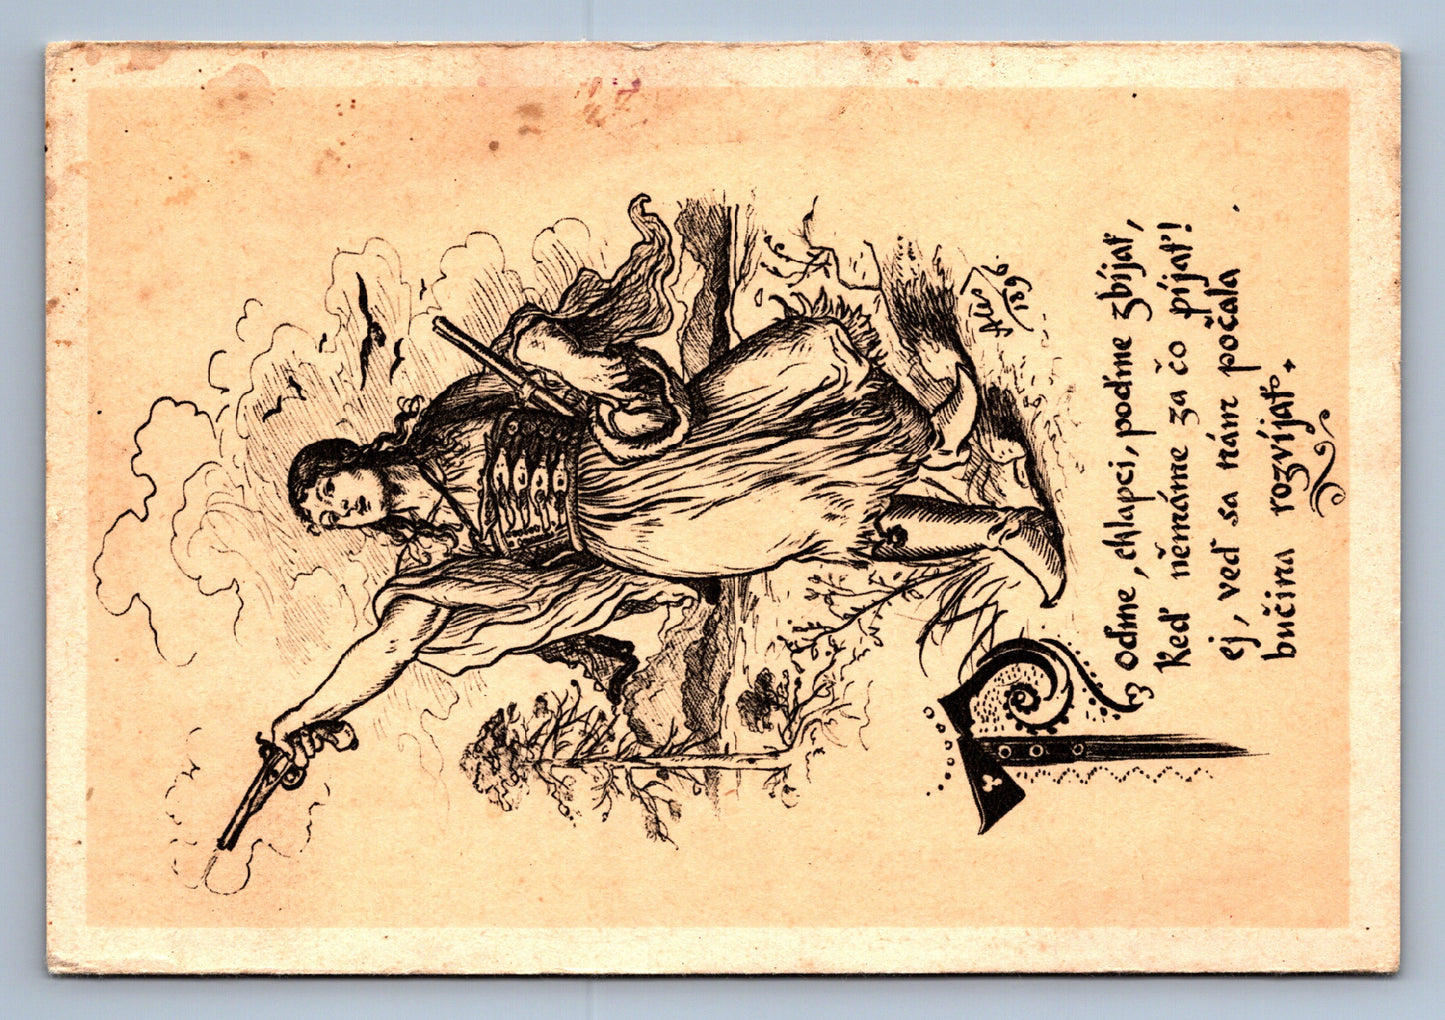 Poďme, chlapci, poďme zbíjať,
Keď němáme za čo píjať!
ej, veď sa nám počala
bučina rozvíjať.
Aleš
1896.